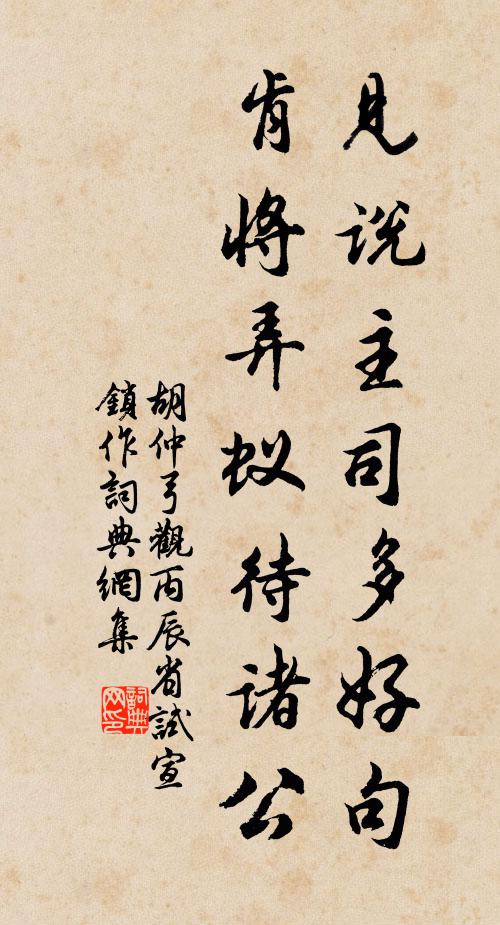 见说主司多好句
肯将弄蚁待诸公
胡仲弓觀丙辰省試宣
鎖作詞典網集
詞典网印